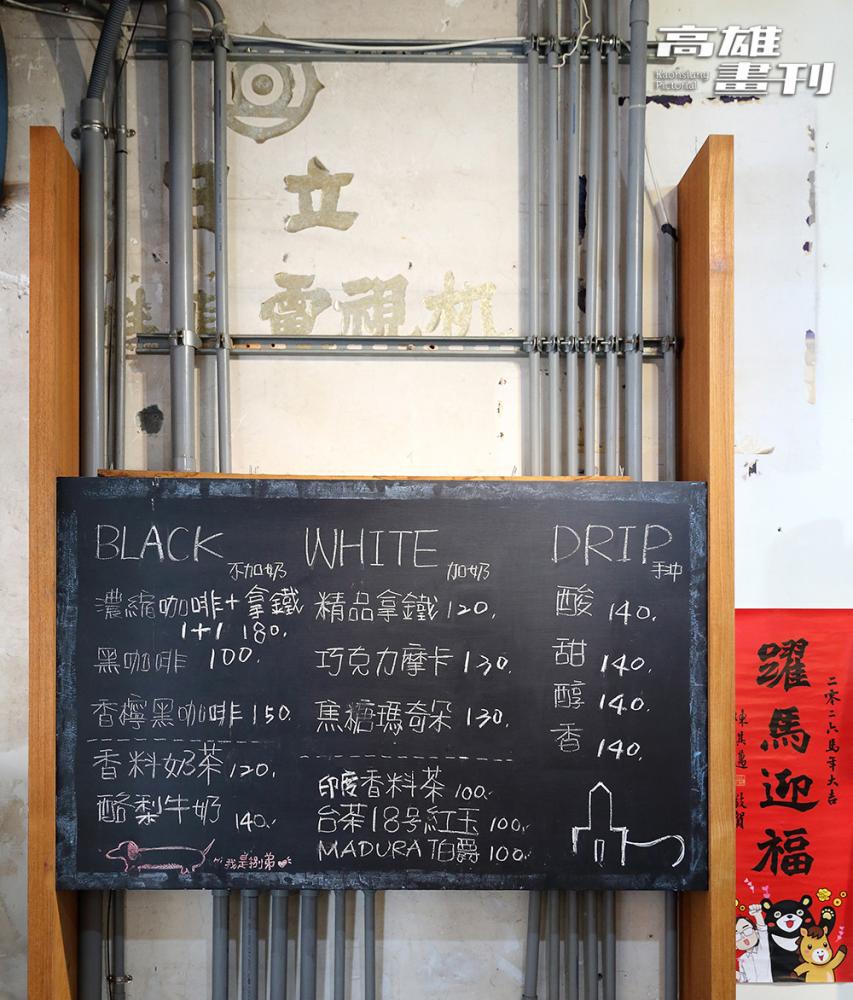 高雄
畫刊
Kaohsiung
Pictorial
日立
電視机
BLACK 不加奶
濃縮咖啡+拿鐵
1+1 180.
黑咖啡 100.
香檸黑咖啡 150.
香料奶茶 120.
酪梨牛奶 140.
我是捌弟
WHITE 加奶
精品拿鐵 120.
巧克力摩卡 130.
焦糖瑪奇朵 130.
印度香料茶 100.
台茶18号紅玉 100.
MADURA 伯爵 100.
DRIP 手冲
酸 140.
甜 140.
醇 140.
香 140.
躍馬迎福
二零二六馬年大吉
陳其邁 敬賀